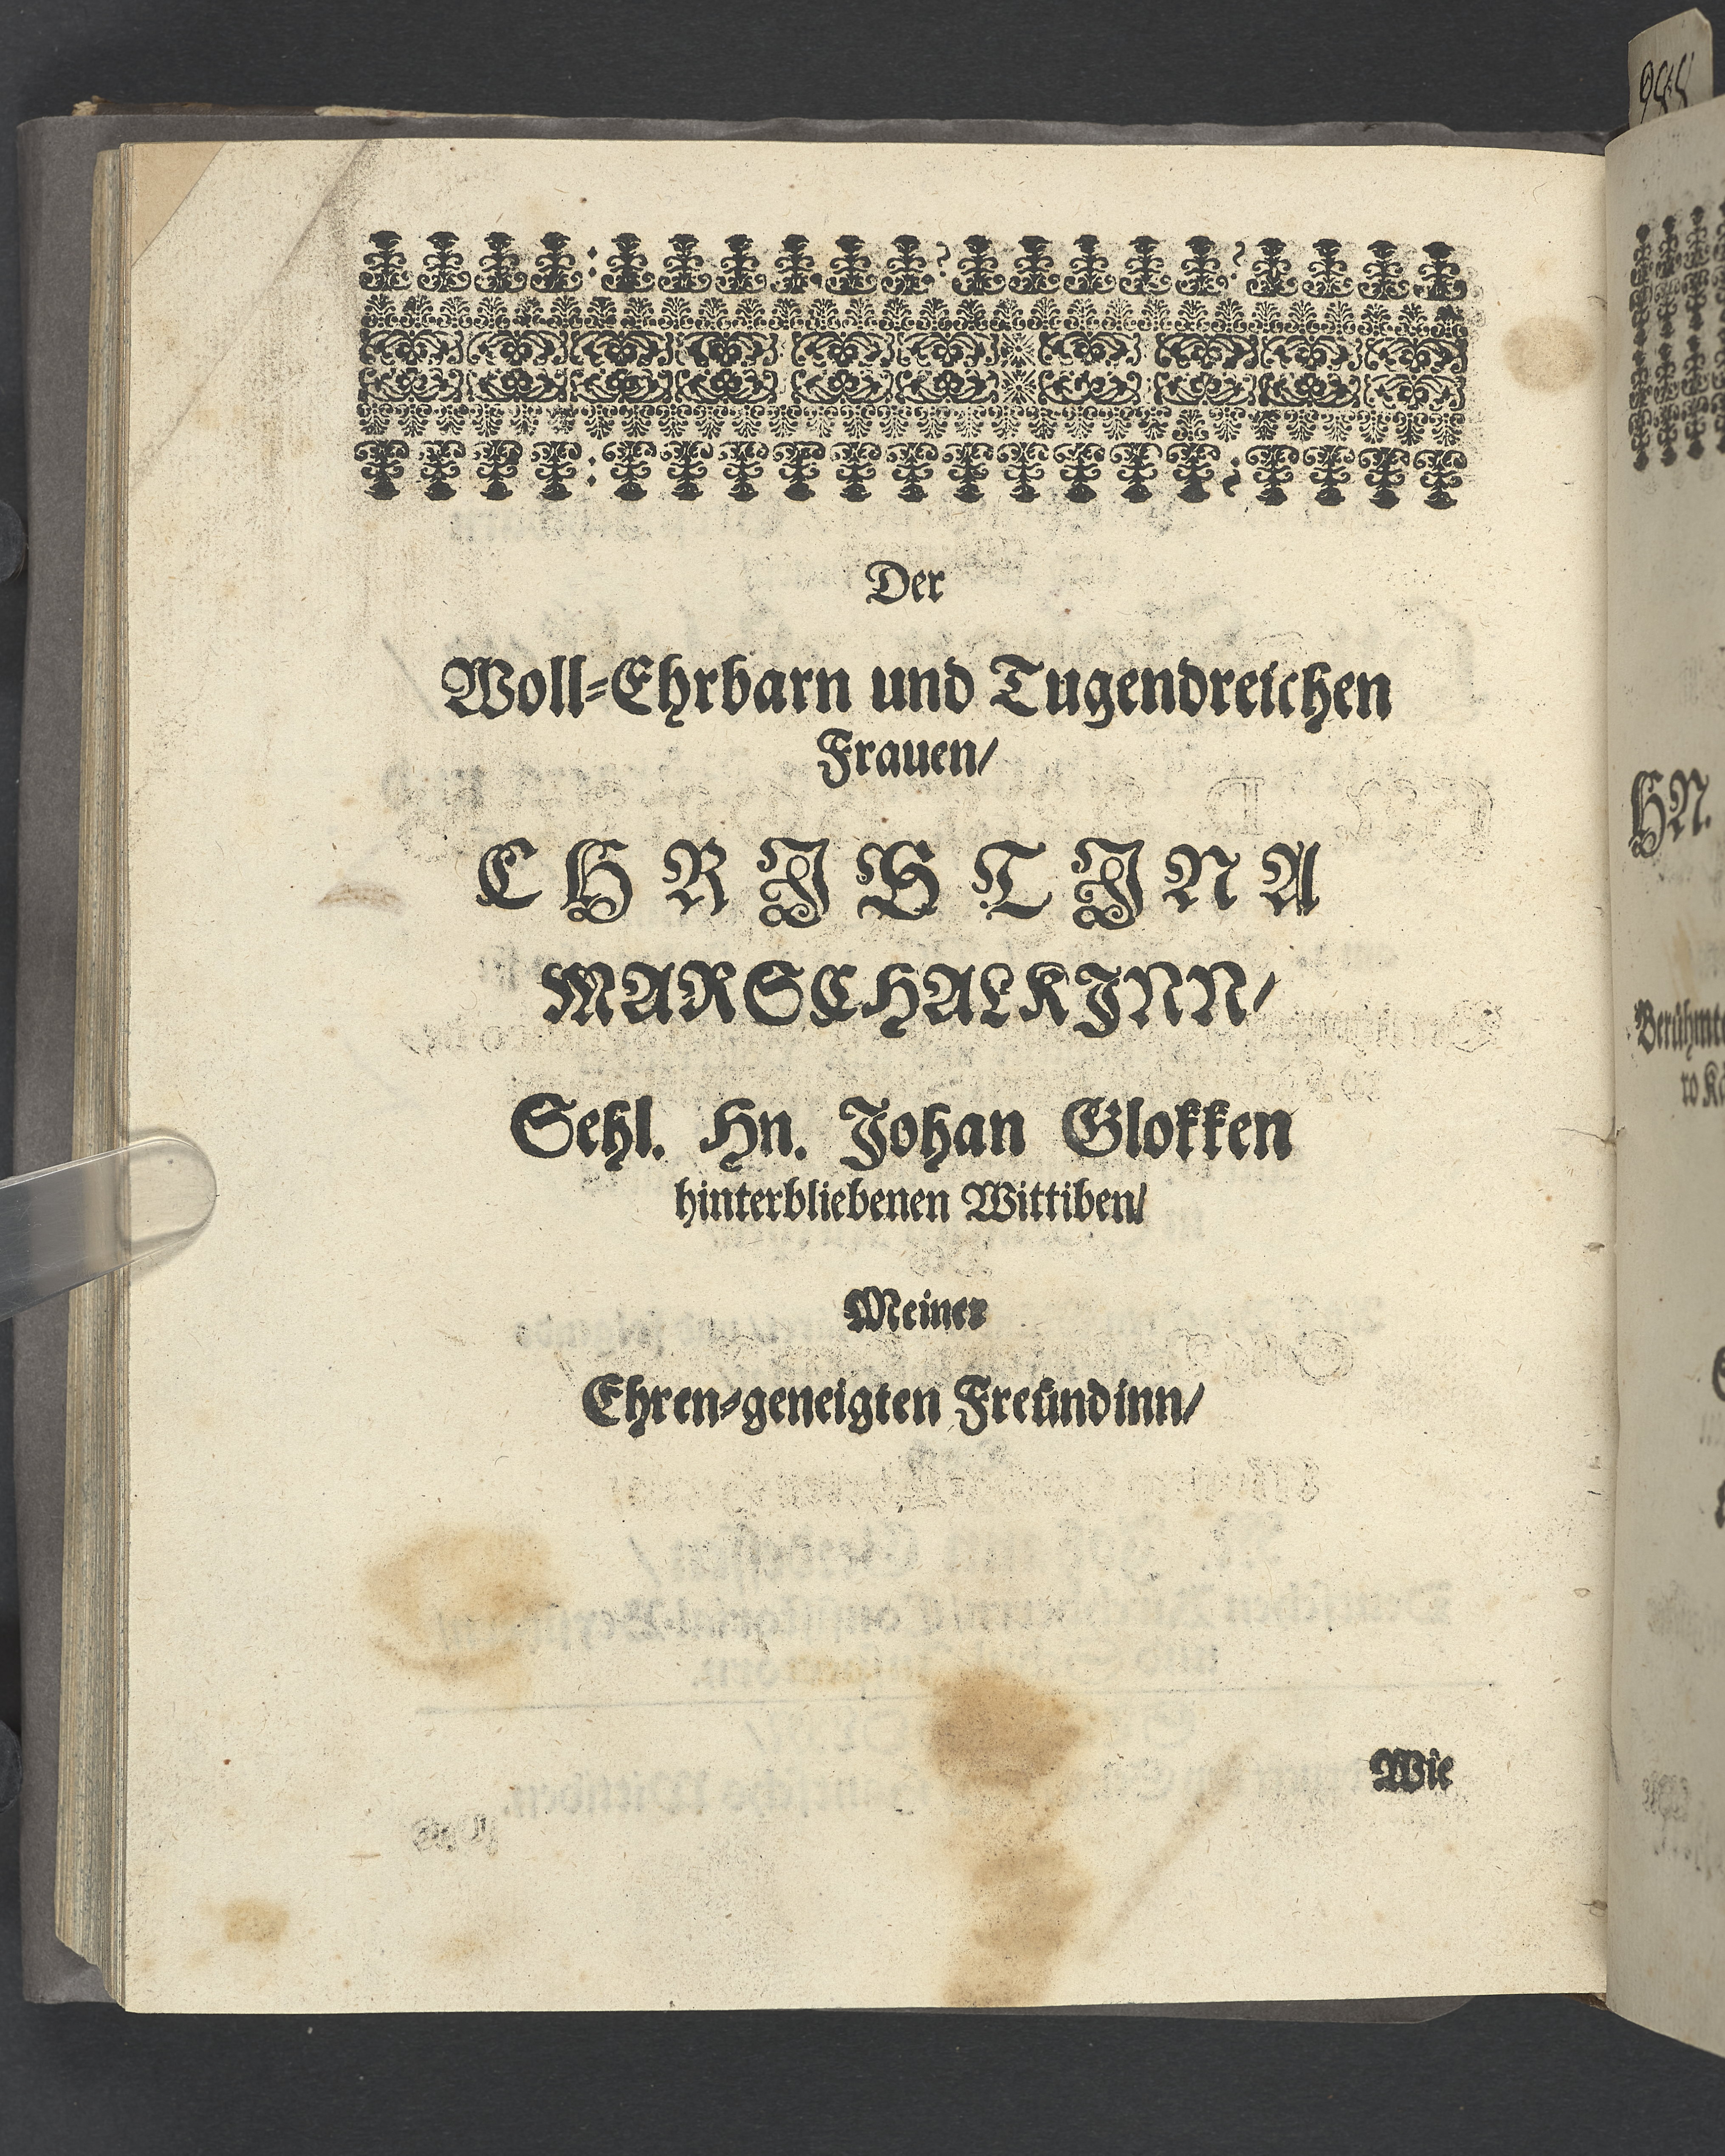 Der
Woll-Ehrbarn und Tugendreichen
Frauen/
CHRJSTJNA
MARSCHALKJNN/
Sehl. Hn. Johan Glokken
hinterbliebenen Wittiben/
Meiner
Ehren-geneigten Freündinn/
Wie
HN.
Berühmte